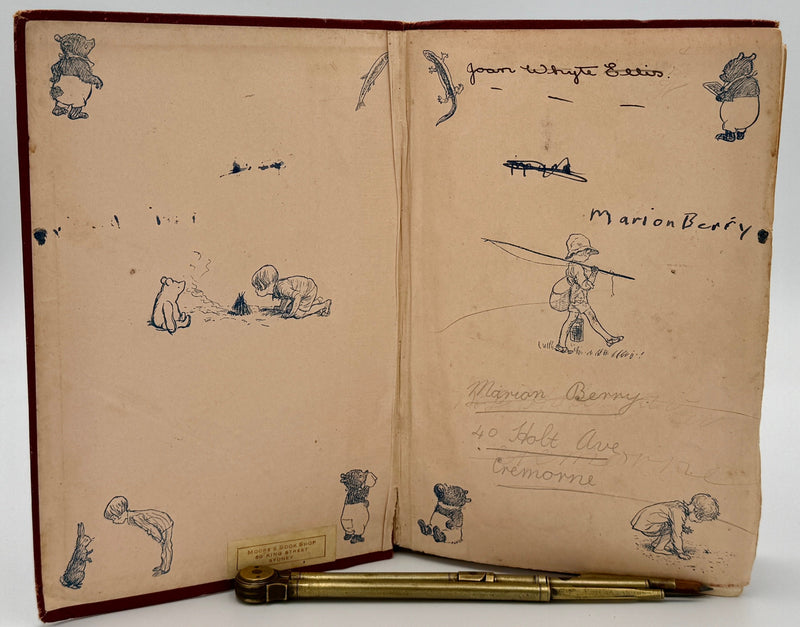 Joan Whyte Ellis.
Marion Berry
Marion Berry
40 Holt Ave
Cremorne
MOORE'S BOOK SHOP
SYDNEY